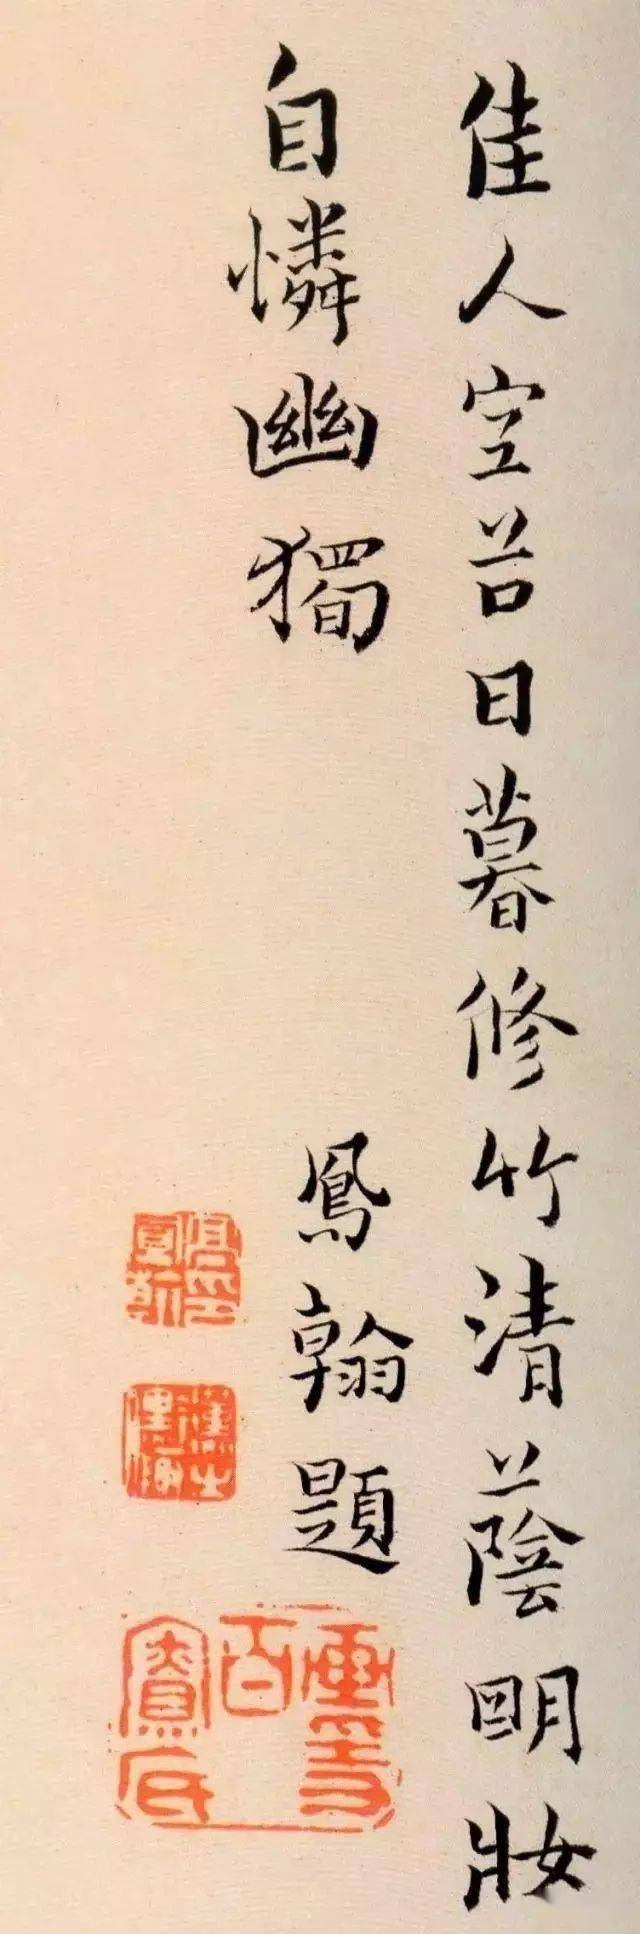 佳人空谷日暮修竹清蔭明妝
自憐幽獨
鳳翰題